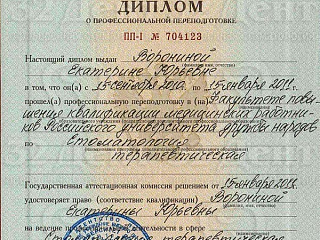 ДИПЛОМ
О ПРОФЕССИОНАЛЬНОЙ ПЕРЕПОДГОТОВКЕ
ПП-I № 704123
Настоящий диплом выдан Ворониной
(фамилия, имя, отчество)
Екатерине Юрьевне
в том, что он(а) с 15 сентября 2010г. по 15 января 2011г.
прошел(а) профессиональную переподготовку в (на) Факультете повы-
шения квалификации медицинских работни-
ков Российского университета дружбы народов
по Стоматология
терапевтическая
Государственная аттестационная комиссия решением от 15 января 2011г.
удостоверяет право (соответствие квалификации) Ворониной
Екатерины Юрьевны
на ведение деятельности в сфере
терапевтическая